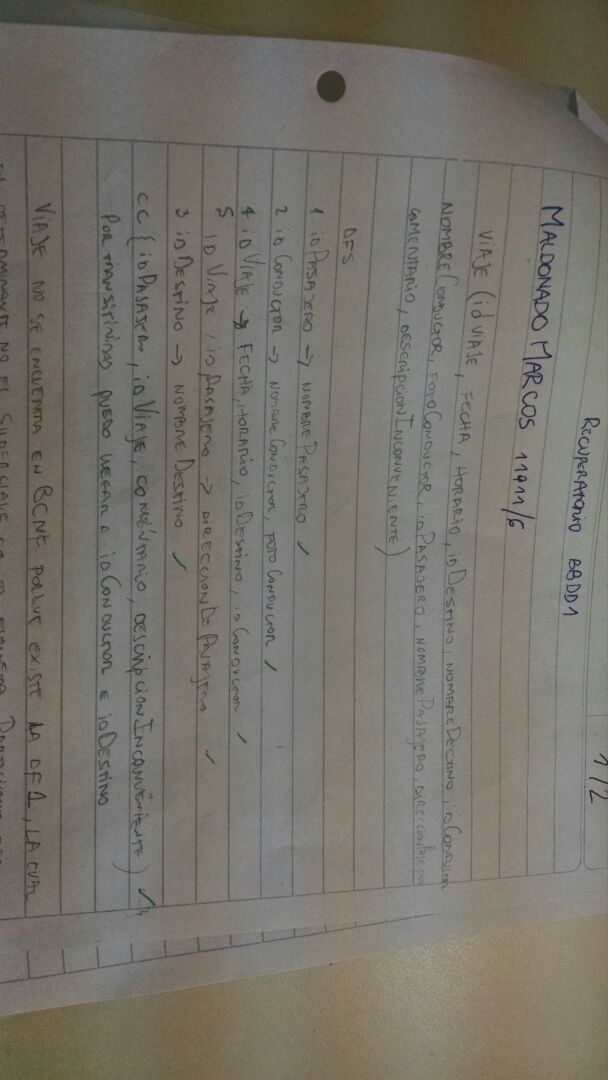 1/2
RECUPERATORIO BBDD1
MALDONADO MARCOS 11911/6
VIAJE (idVIAJE, FECHA, HORARIO, idDESTINO, NOMBREDESTINO, idCONDUCTOR
NOMBRECONDUCTOR, FOTOCONDUCTOR, idPASAJERO, NOMBREPASAJERO,
COMENTARIO, DESCRIPCIONINCONVENIENTE)
DFS
1 idPASAJERO → NOMBREPASAJERO ✓
2 idCONDUCTOR → NOMBRECONDUCTOR, FOTOCONDUCTOR ✓
4 idVIAJE → FECHA, HORARIO, idDESTINO, idCONDUCTOR ✓
5 idVIAJE, idPASAJERO → DIRECCIONDEPASAJERO ✓
3 idDESTINO → NOMBREDESTINO ✓
CC {idPASAJERO, idVIAJE, COMENTARIO, DESCRIPCIONINCONVENIENTE} ✓
POR TRANSITIVIDAD PUEDO LLEGAR A idCONDUCTOR E idDESTINO
VIAJE NO SE ENCUENTRA EN BCNF PORQUE EXISTE LA DF1, LA CUAL